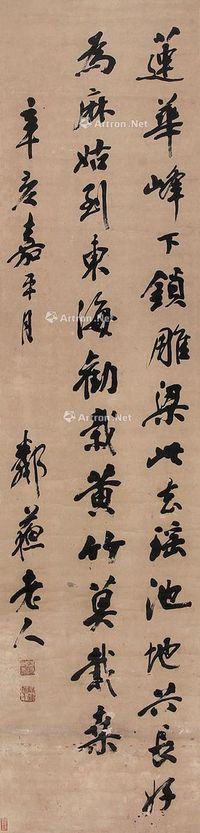 蓮華峰下鎖雕梁此去瑤池地共長好
為麻姑到東海勸栽黃竹莫栽桑
辛亥嘉平月
鄰蘇老人
Artron.Net
Artron.Net
Artron.Net
Artron.Net